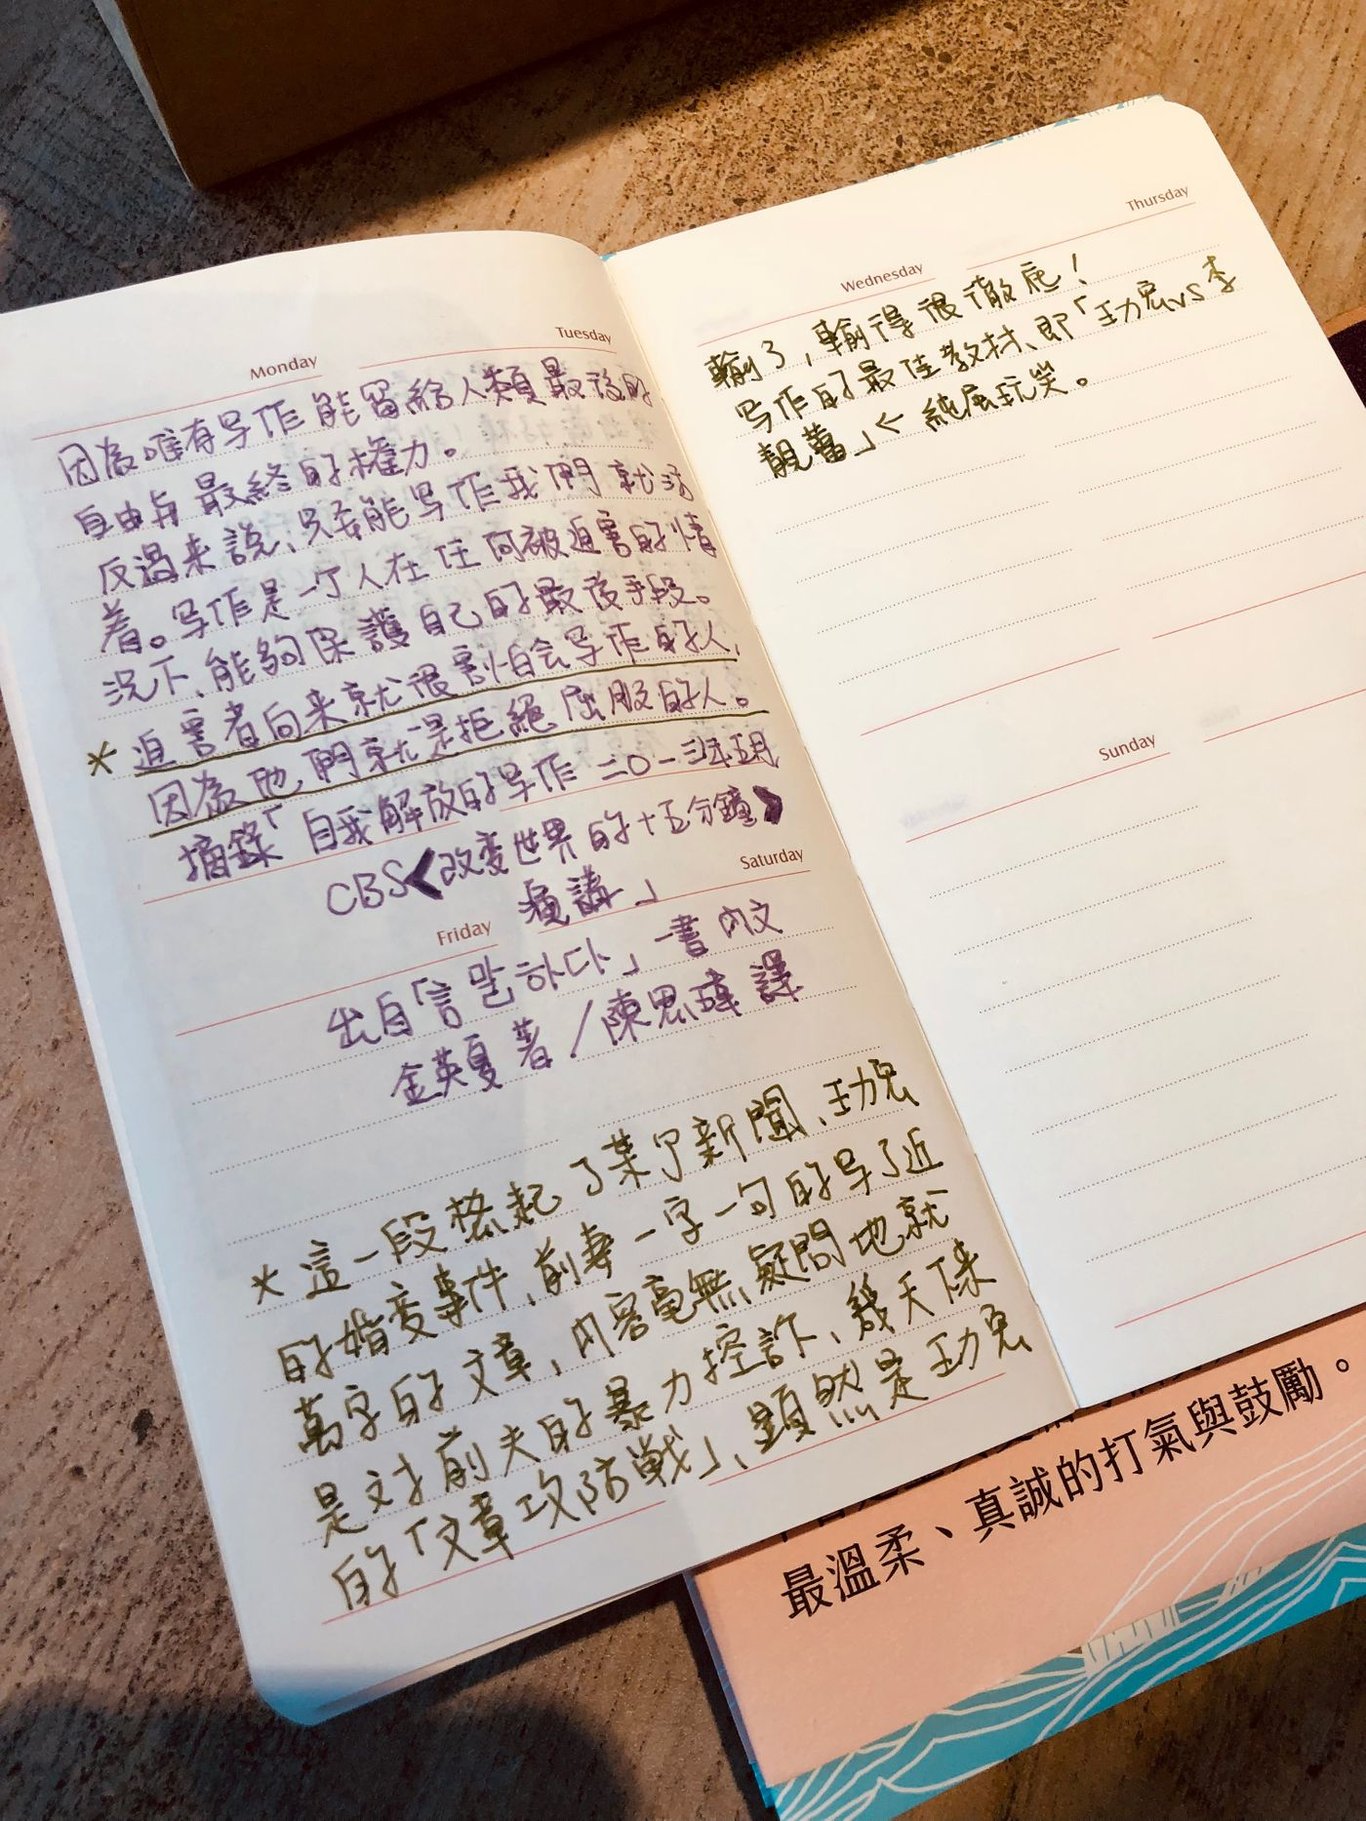 Monday
Tuesday
因為唯有写作能留給人類最後的
自由与最終的權力。
反過来說、只要能写作我們就活
着。写作是一个人在任何被迫害的情
況下、能夠保護自己的最後手段。
*迫害者向来就很害怕会写作的人,
因為他們就是拒絕屈服的人。
摘錄「自我解放的写作 二〇一三年五月
CBS《改变世界的十五分鐘》
演講」
Friday
Saturday
出自「言 말하다」一書內文
金英夏 著/陳思瑋 譯
*這一段撩起了某个新聞、王力宏
的婚变事件、前妻一字一句的写了近
萬字的文章,內容毫無疑問地就
是对前夫的暴力控訴、幾天下来
的「文章攻防戦」、顕然是王力宏
Wednesday
Thursday
輸了,輸得很徹底!
写作的最佳教材、即「王力宏vs李
靚蕾」← 純屬玩笑。
Sunday
最溫柔、真誠的打氣與鼓勵。